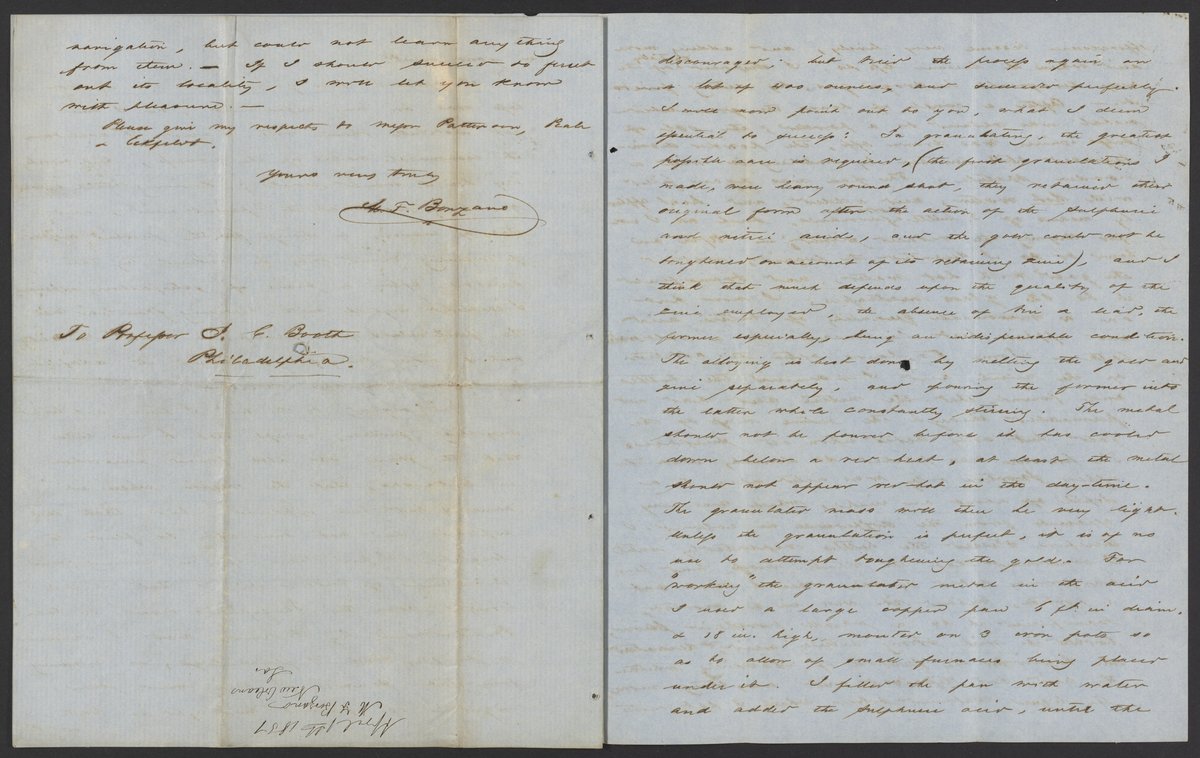 navigation, but could not learn anything
from them. — If I should succeed to find
out its locality, I will let you know
with pleasure. —
Please give my respects to Messrs Patterson, Peale
Yours very truly
M. F. Bonzano
To Professor J. C. Booth
Philadelphia.
April 1857
M F Bonzano
New Orleans
La
discouraged. but tried the process again on
a lot of 400 ounces, and succeeded perfectly.
I will now point out to you, what I deem
essential to success: In granulating, the greatest
possible care is required, (the first granulations I
made, were heavy round shot, they retained their
original form after the action of the sulphuric
and nitric acids, and the gold could not be
toughened on account of its retaining zinc), and I
think that much depends upon the quality of the
zinc employed, the absence of tin & lead, the
former especially, being an indispensable condition.
The alloying is best done by melting the gold and
zinc separately, and pouring the former into
the latter while constantly stirring. The metal
should not be poured before it has cooled
down below a red heat, at least the metal
should not appear red-hot in the day-time.
The granulated mass will then be very light.
Unless the granulation is perfect, it is of no
use to attempt toughening the gold. For
"working" the granulated metal in the acid
I used a large copper pan 6 ft. in diam.
& 18 in. high, mounted on 3 iron pots so
as to allow of small furnaces being placed
under it. I filled the pan with water
and added the sulphuric acid, until the